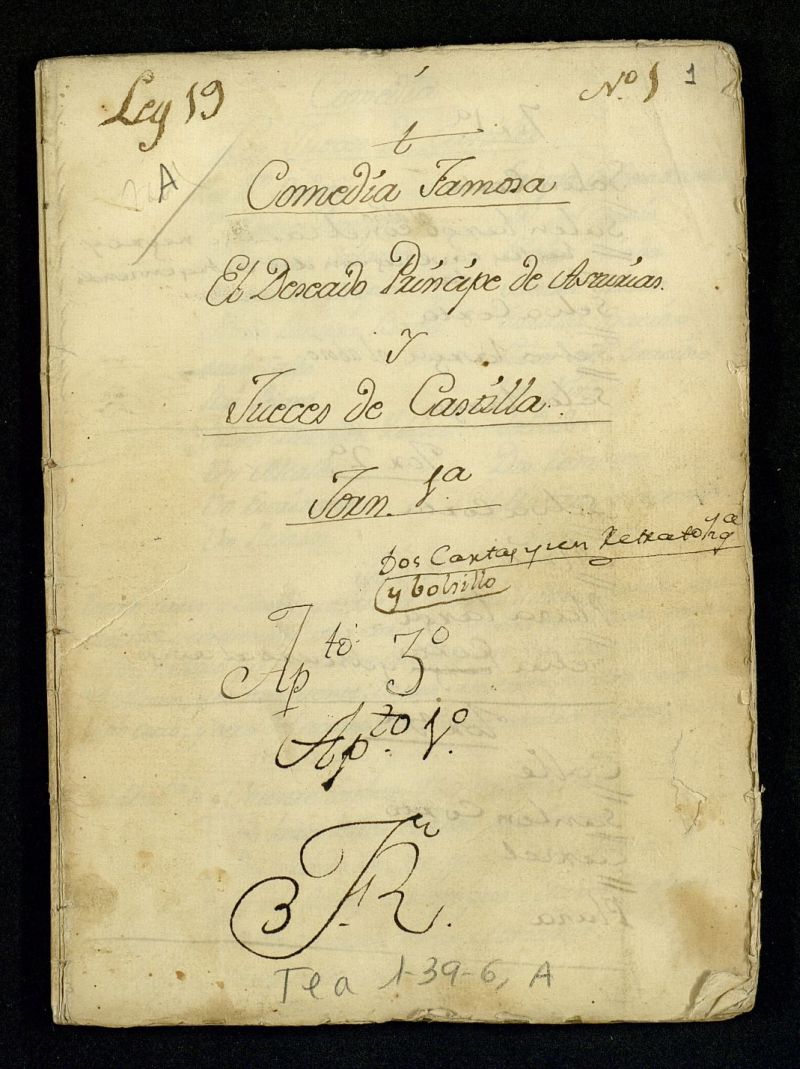 Leg 19
Nº 1 1
A
Comedia Famosa
El Deseado Príncipe de Asturias.
Y
Jueces de Castilla.
Jorn. 1ª
Dos Cartas y un Retrato 1ª
y bolsillo
Apto 3º
Apto 1º.
Tea 1-39-6, A